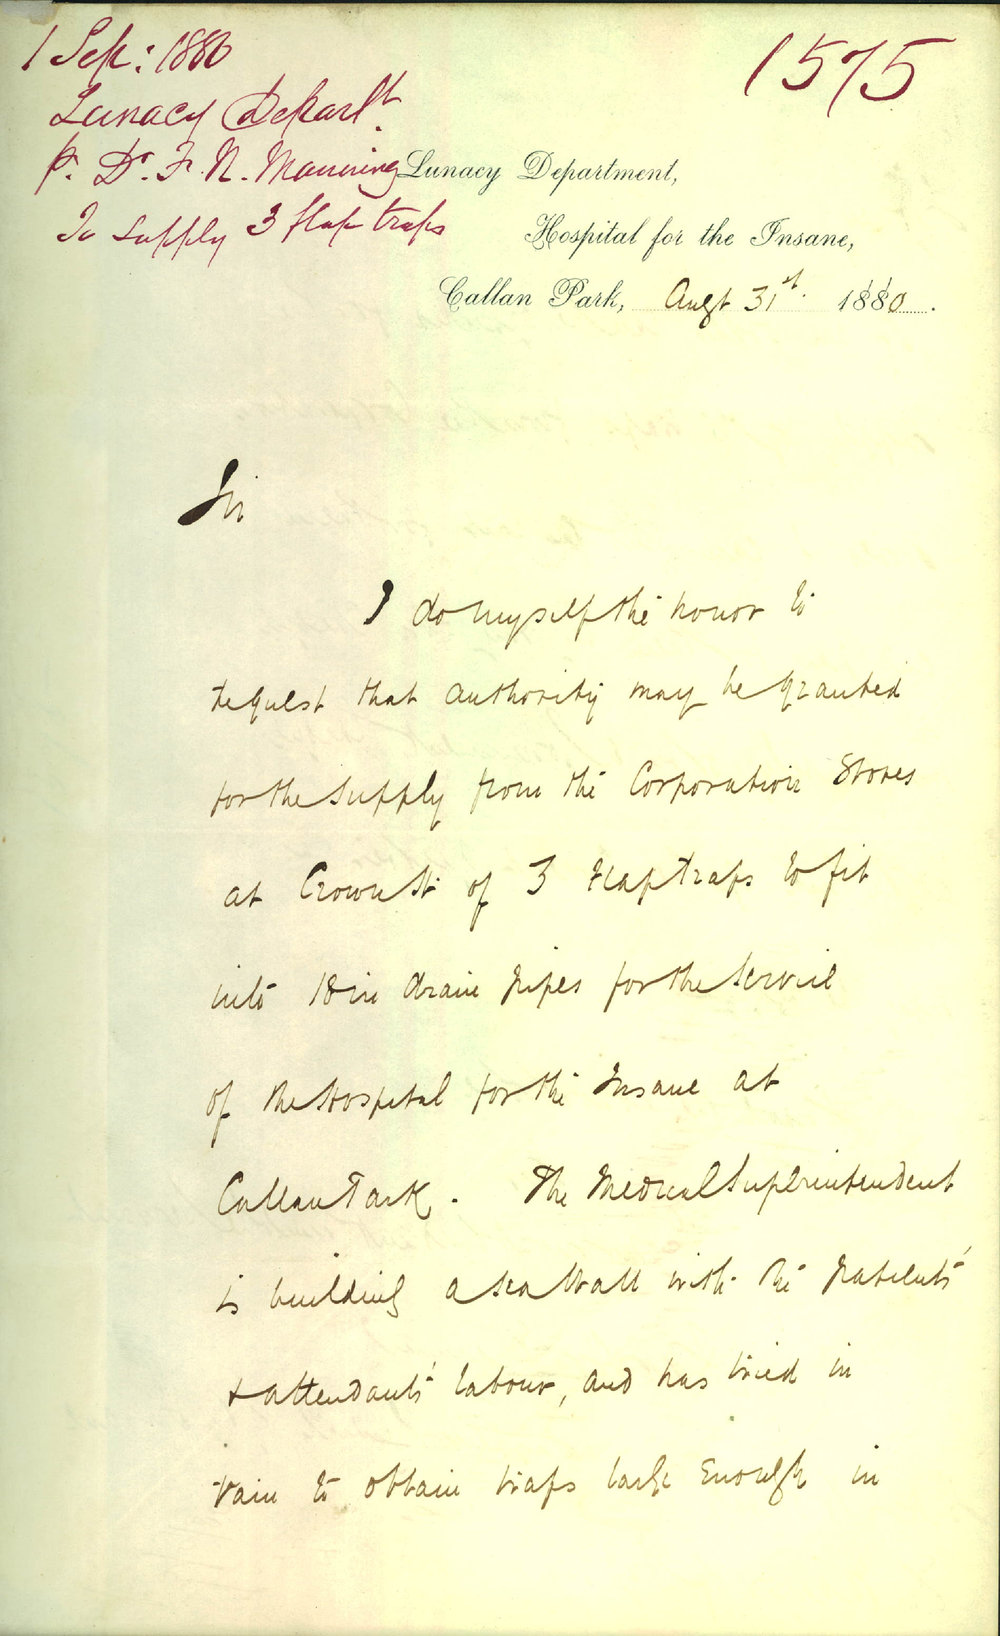 1 Sep: 1880
1575
Lunacy Departt.
p. Dr. F. N. Manning
To supply 3 flap traps
Lunacy Department,
Hospital for the Insane,
Callan Park, Augt 31st. 1880.
Sir
I do myself the honor to
request that authority may be granted
for the supply from the Corporation Stores
at Crown St. of 3 Flap Traps to fit
into 18 in drain pipes for the service
of the Hospital for the Insane at
Callan Park. The Medical Superintendent
is building a sea wall with the patients'
& attendants' labour, and has tried in
vain to obtain traps large enough in